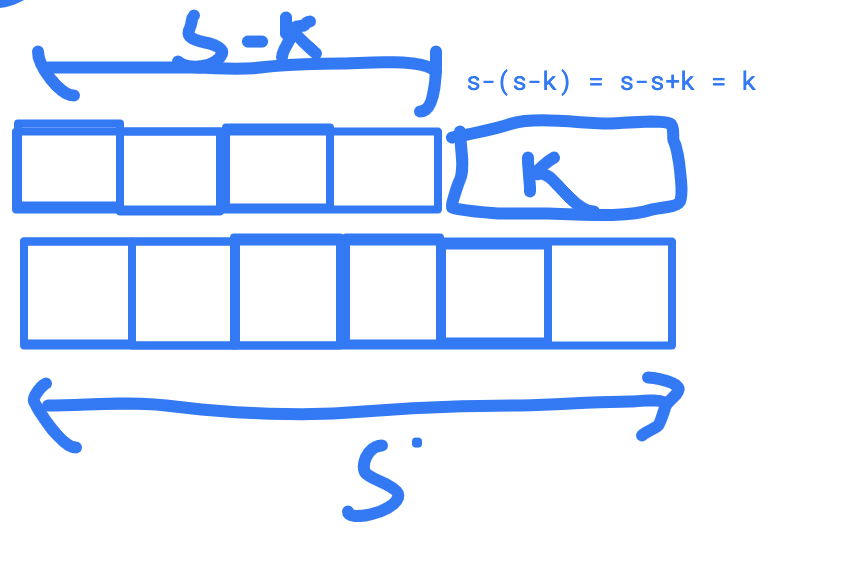 S-K
s-(s-k) = s-s+k = k
K
S